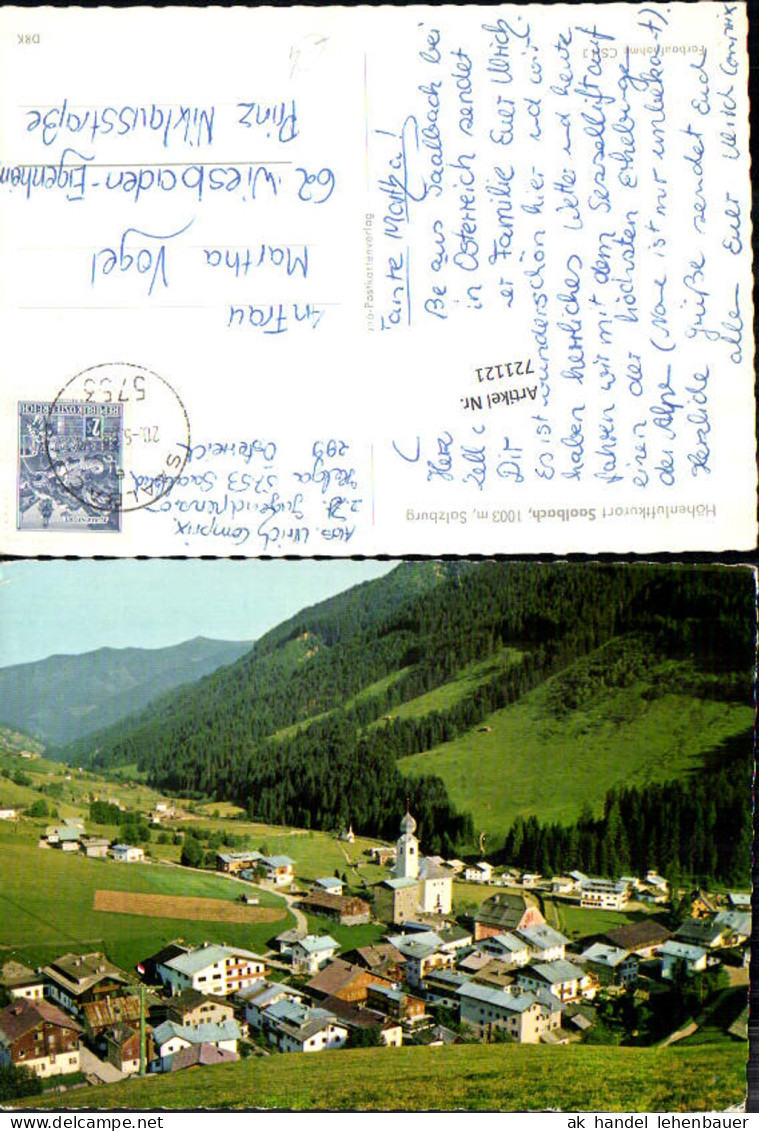 Höhenluftkurort Saalbach, 1003 m, Salzburg
Farbaufnahme
DRK
Tante Martha!
Be aus Saalbach bei
in Österreich sendet
er Familie Euer Ulrich
Es ist wunderschön hier und wir
haben herrliches Wetter und heute
fahren wir mit dem Sessellift auf
einen der höchsten Erhebungen
der Alpen (Name ist mir unbekannt)
Herzliche Grüße sendet Euch
allen Euer Ulrich Comprix
Herz
Zell
Dir
Artikel Nr.
721121
Abs. Ulrich Comprix
z.Zt.
Helga 5753 Saalbach
289 Österreich
SAALBACH
5753
20.-5
REPUBLIK ÖSTERREICH
2
KLAGENFURT
An Frau
Martha Vogel
62 Wiesbaden-Eigenheim
Prinz Nikolausstraße
-Postkartenverlag
ak handel lehenbauer